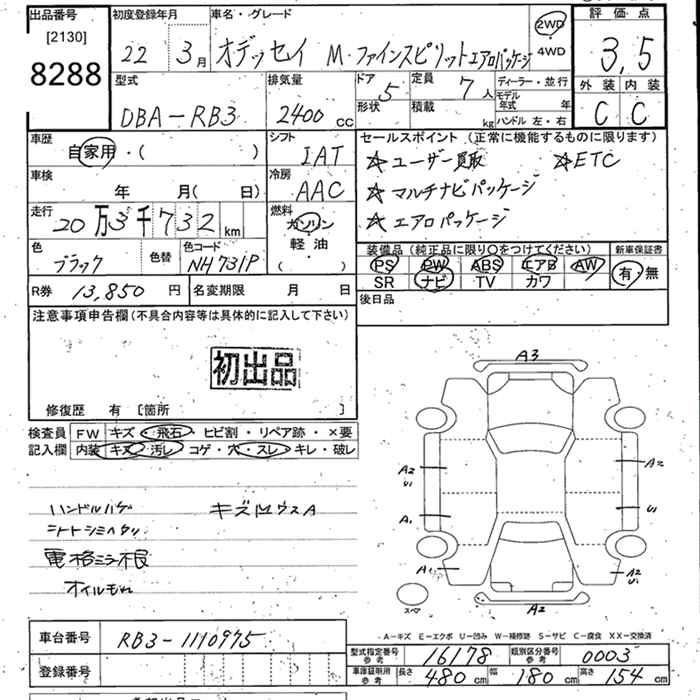 出品番号 [2130] 8288
初度登録年月 22年 3月
車名・グレード オデッセイ M・ファインスピリットエアロパッケージ
2WD・4WD
評価点 3,5
外装 C 内装 C
型式 DBA-RB3
排気量 2400 cc
ドア 5
形状
定員 7人
積載 kg
ディーラー・並行
モデル年式 年
ハンドル 左・右
車歴 自家用・( )
シフト IAT
セールスポイント (正常に機能するものに限ります)
☆ユーザー買取 ☆ETC
☆マルチナビパッケージ
☆エアロパッケージ
車検 年 月( 日)
冷房 AAC
走行 20万3千732km
燃料 ガソリン 軽油 ( )
色 ブラック
色替
色コード NH731P
装備品(純正品に限り○をつけてください)
新車保証書 有・無
PS PW ABS エアB AW
SR ナビ TV カワ
R券 13,850円
名変期限 月 日
後日品
注意事項申告欄(不具合内容等は具体的に記入して下さい)
初出品
修復歴 有 [箇所 ]
検査員記入欄
FW キズ・飛石・ヒビ割・リペア跡・×要
内装 キズ・汚レ・コゲ・穴・スレ・キレ・破レ
ハンドルハゲ キズ凹ウスA
シートシミヘタリ
電格ミラー根
オイルもれ
A3
A2 U1
A2
A1
U1
A1
A2 U1
A2
スペア
A-キズ E-エクボ U-凹み W-補修跡 S-サビ C-腐食 XX-交換済
車台番号 RB3-1110975
登録番号
型式指定番号参考 16178
類別区分番号参考 0003
車庫証明用参考 長さ 480cm 幅 180cm 高さ 154cm